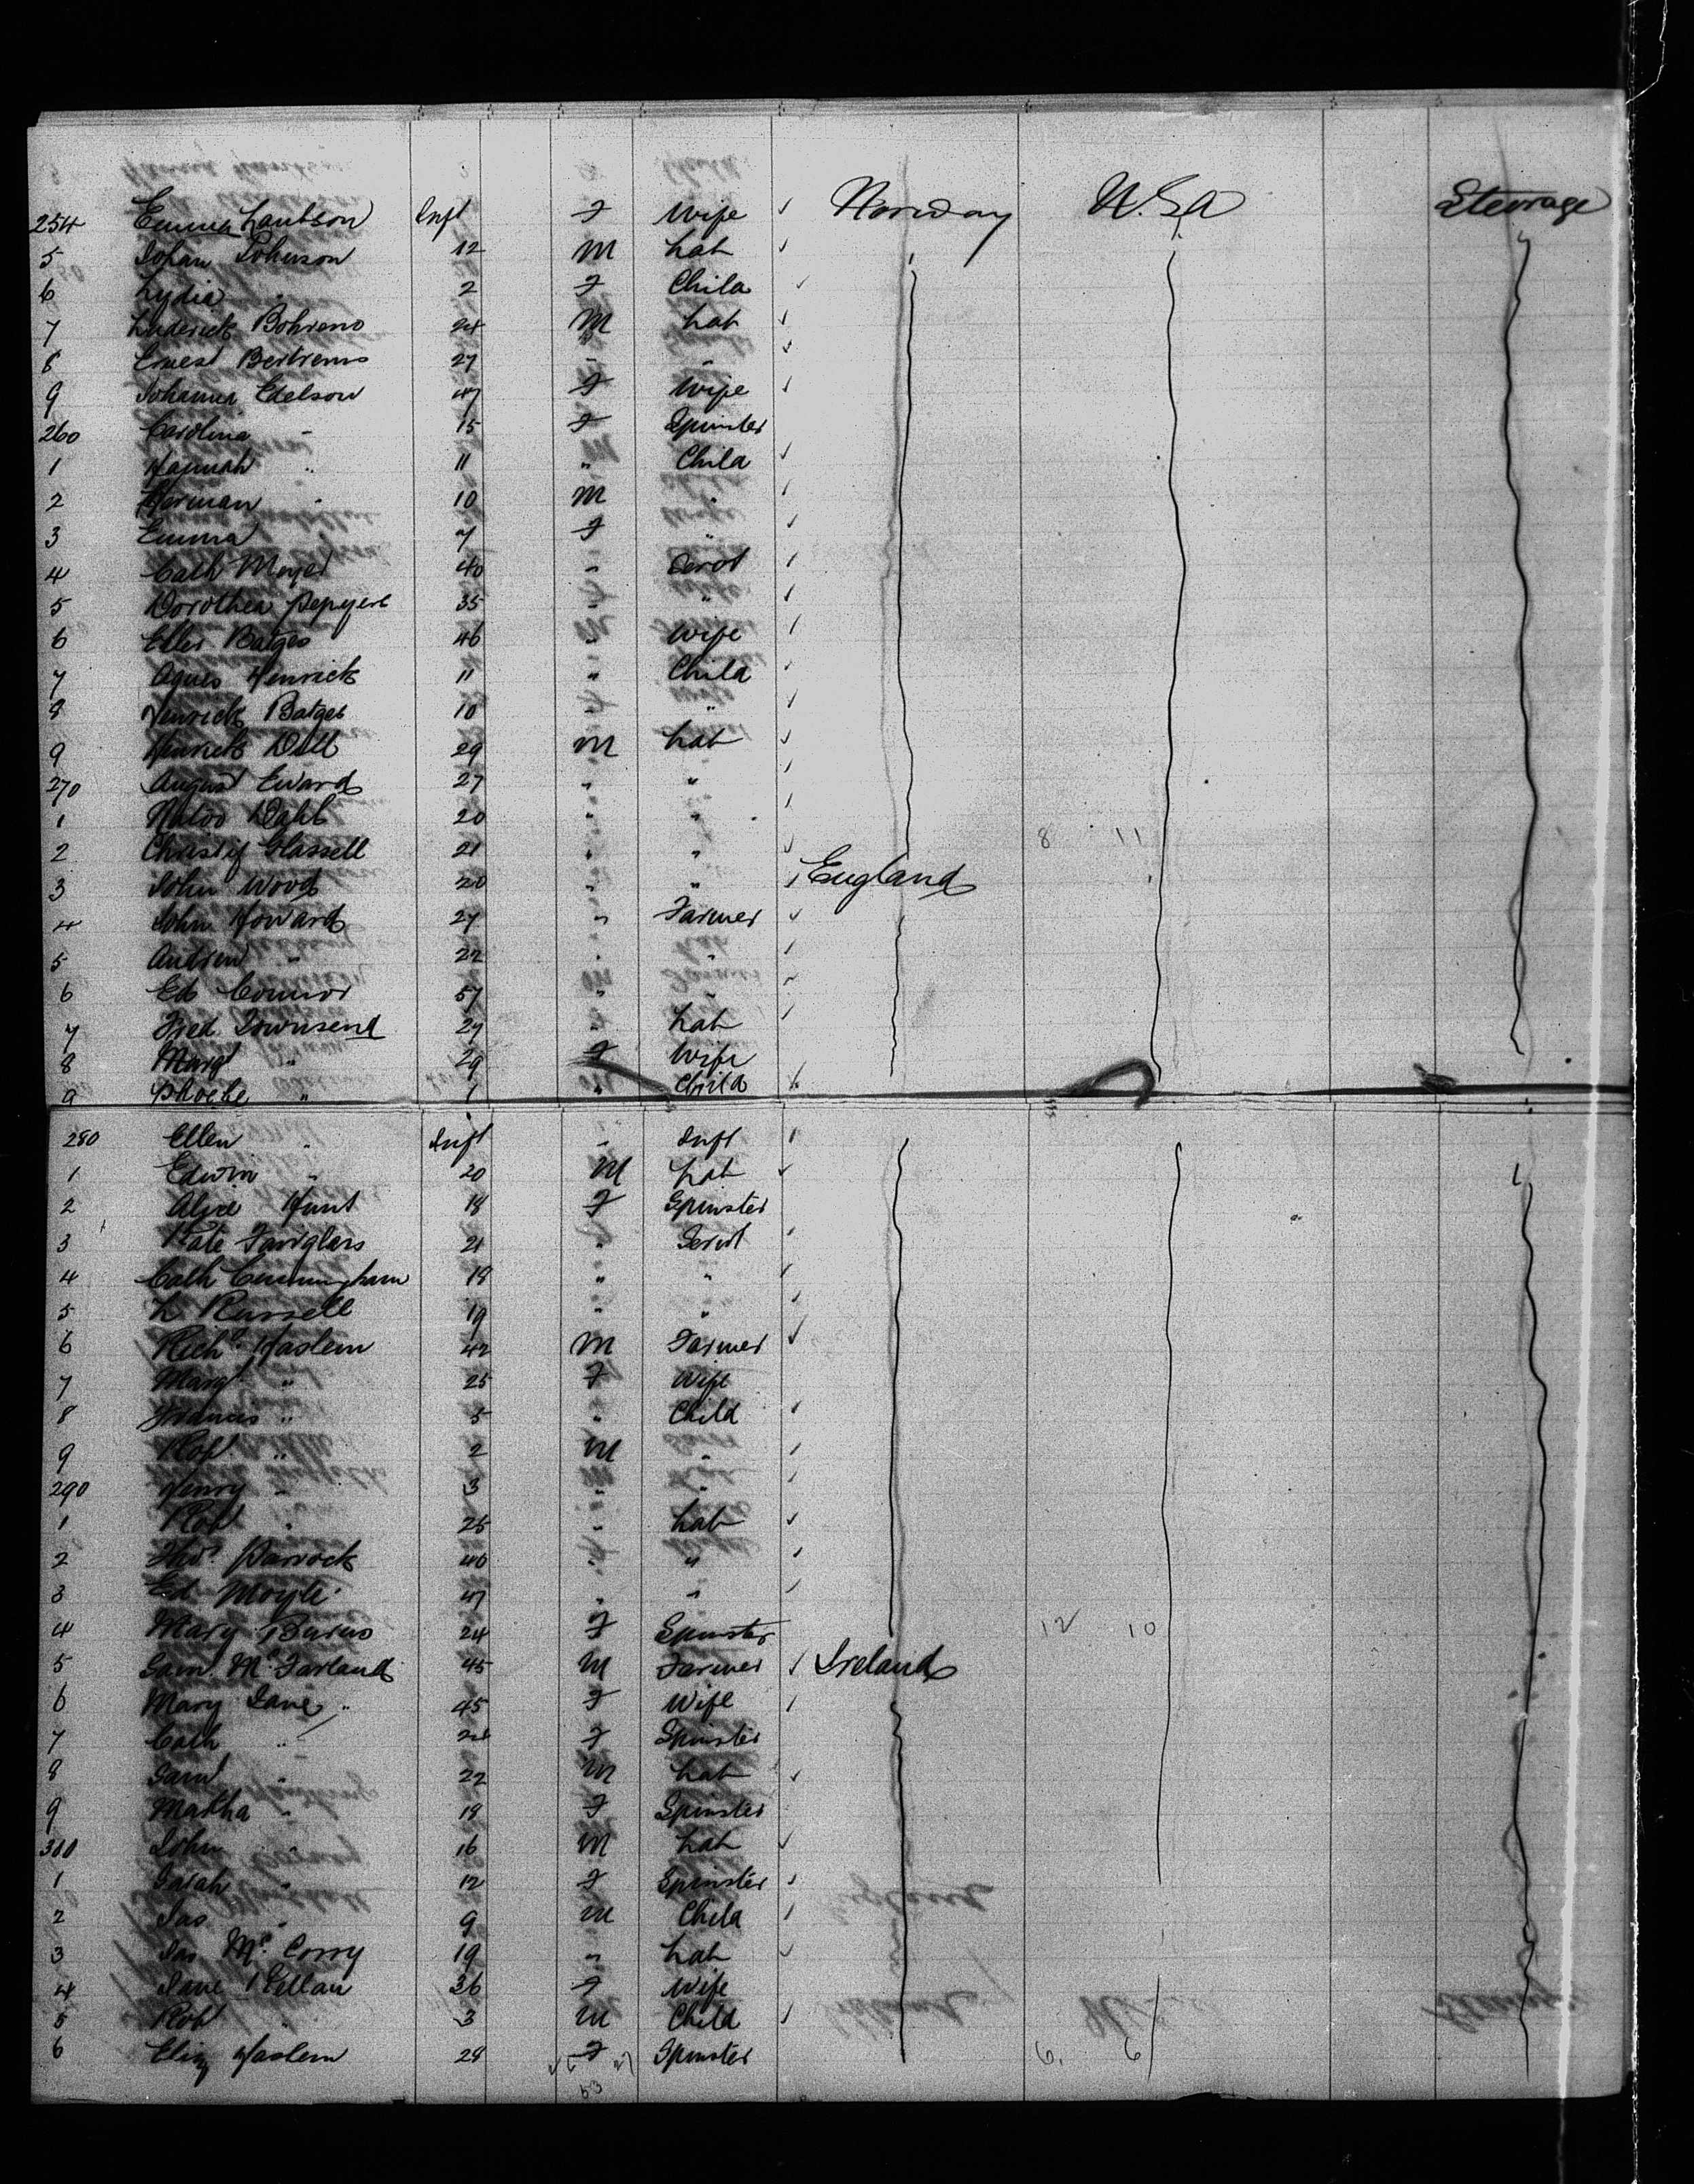 254 Emma Laubson Inft F Wife ✓ Norway U.S.A Steerage
5 Johan Johnson 12 M Lab ✓
6 Lydia " 2 F Child ✓
7 Luderick Bohrens 24 M Lab ✓
8 Ernest Bertrems 27 " " ✓
9 Johanna Edelson 47 F Wife ✓
260 Carolina " 15 F Spinster
1 Hannah " 11 " Child ✓
2 Herman " 10 M " ✓
3 Emma " 7 F " ✓
4 Cath Meyer 40 " Servt ✓
5 Dorothea 35 " " ✓
6 Batges 46 " Wife ✓
7 Agnes Henrick 11 " Child ✓
8 Henrick Batges 10 " " ✓
9 Henrick Doll 29 M Lab ✓
270 August Ewards 27 " " ✓
1 Dahl 20 " " ✓
2 Glassell 21 " " ✓
3 John Wood 20 " " ✓ England
4 John Howard 27 " Farmer ✓
5 Andrew " 22 " " ✓
6 Ed Connor 57 " " ✓
7 Fred Townsend 27 " Lab ✓
8 Margt " 29 F Wife
9 Phoebe " 1 " Child ✓
280 Ellen " Inft " Inft ✓
1 Edwin " 20 M Lab ✓
2 Alice Hunt 18 F Spinster
3 Kate 21 " Servt ✓
4 Cath Cunningham 18 " " ✓
5 L Russell 19 " " ✓
6 Richd Haslem 42 M Farmer ✓
7 Margt " 25 F Wife
8 Frances " 5 " Child ✓
9 Robt " 2 M " ✓
290 Henry " 3 " " ✓
1 Robt " 25 " Lab ✓
2 Thos 40 " " ✓
3 Ed Moyle 47 " " ✓
4 Mary Burns 24 F Spinster 12 10
5 Saml McFarland 45 M Farmer ✓ Ireland
6 Mary Jane " 45 F Wife ✓
7 Cath " F Spinster
8 Saml " 22 M Lab ✓
9 Martha " 18 F Spinster
300 John " 16 M Lab ✓
1 Sarah " 12 F Spinster ✓
2 Jas " 9 M Child ✓
3 Jas McCorry 19 " Lab ✓
4 Jane Kellan 36 F Wife
5 Robt " 3 M Child ✓
6 Eliz Haslem 28 F Spinster 6 6